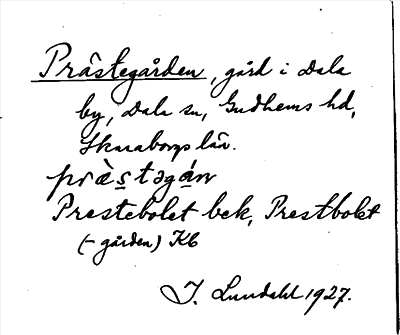 Prästegården, gård i Dala
by, Dala sn, Gudhems hd,
Skaraborgs län.
pràstəgán
Prestebolet bek, Prestbolet
(- gården) Kb
I. Lundahl 1927.